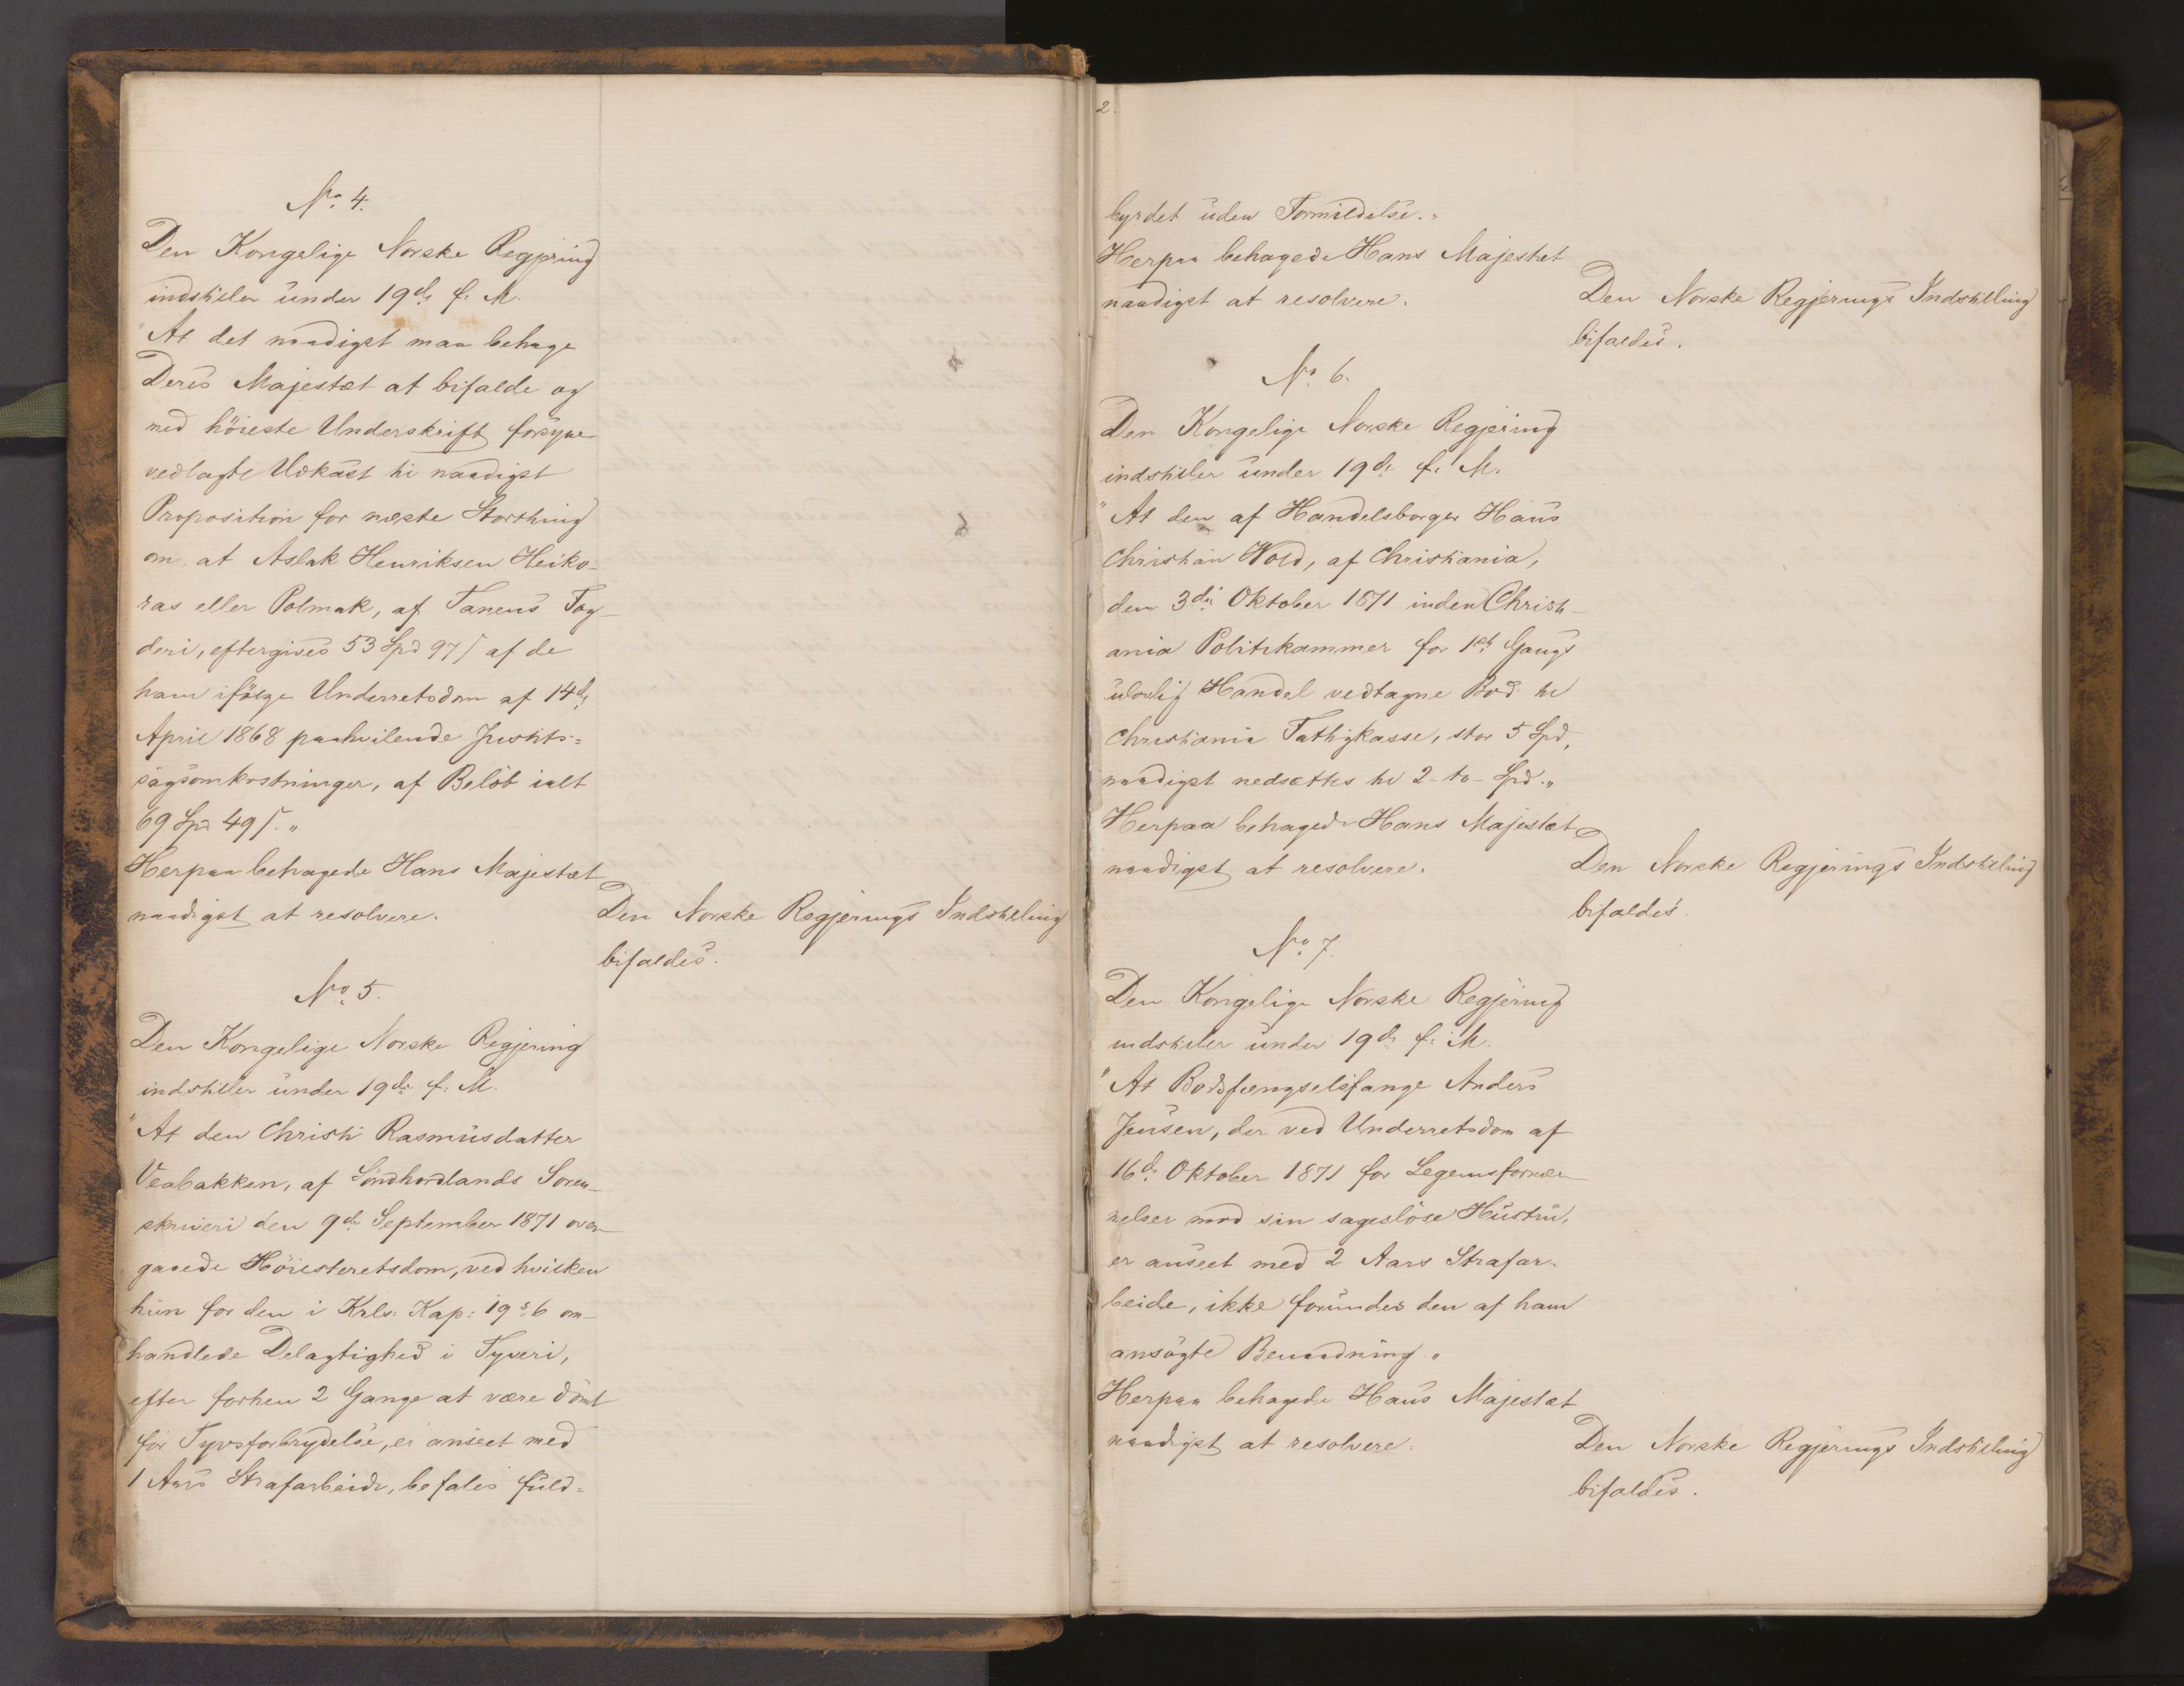 No. 4.
Den Kongelige Norske Regjering
indstiller under 19de f. M.
"At det naadigst maa behage
Deres Majestæt at bifalde og
med höieste Underskrift forsyne
vedlagte Udkast til naadigst
Proposition for næste Storthing
om at Aslak Henriksen Heiko-
ras eller Polmak, af Tanens Fog-
deri, eftergives 53 Spd 97 ſ af de
ham ifölge Underretsdom af 14de
April 1868 paahvilende Justits-
sagsomkostninger, af Belöb ialt
69 Spd 49 ſ."
Herpaa behagede Hans Majestæt
naadigst at resolvere.
Den Norske Regjerings Indstilling
bifaldes.
No. 5.
Den Kongelige Norske Regjering
indstiller under 19de f. M.
"At den Christi Rasmusdatter
Veabakken, af Söndhordlands Soren-
skriveri den 9de September 1871 over-
gaaede Höiesteretsdom, ved hvilken
hun for den i Krls. Kap: 19 § 6 om-
handlede Delagtighed i Tyveri,
efter forhen 2 Gange at være dömt
for Tyvsforbrydelse, er anseet med
1 Aars Strafarbeide, befales fuld-
2.
byrdet uden Formildelse."
Herpaa behagede Hans Majestæt
naadigst at resolvere.
Den Norske Regjerings Indstilling
bifaldes.
No. 6.
Den Kongelige Norske Regjering
indstiller under 19de f. M.
"At den af Handelsborger Hans
Christian Wold, af Christiania,
den 3die Oktober 1871 inden Christi-
ania Politikammer for 1ste Gangs
ulovlig Handel vedtagne Bod til
Christiania Fattigkasse, stor 5 Spd,
naadigst nedsættes til 2 - to - Spd."
Herpaa behagede Hans Majestæt
naadigst at resolvere.
Den Norske Regjerings Indstilling
bifaldes.
No. 7.
Den Kongelige Norske Regjering
indstiller under 19de f. M.
"At Bodsfængselsfange Anders
Jensen, der ved Underretsdom af
16de Oktober 1871 for Legemsfornær-
melser mod sin sageslöse Hustru,
er anseet med 2 Aars Strafar-
beide, ikke forundes den af ham
ansögte Benaadning."
Herpaa behagede Hans Majestæt
naadigst at resolvere.
Den Norske Regjerings Indstilling
bifaldes.